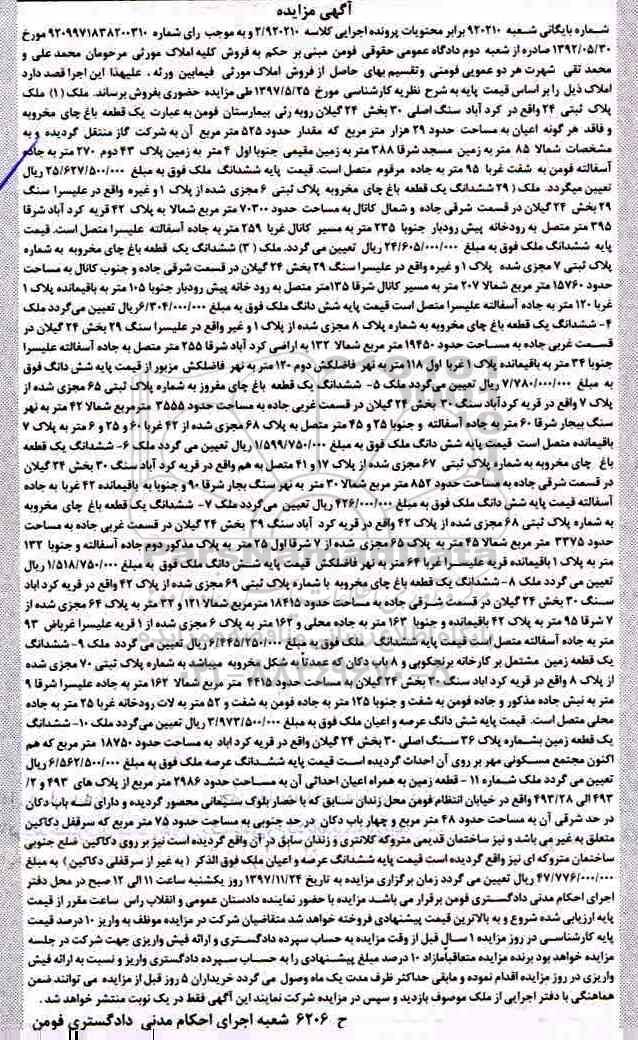 آگهی مزایده
شماره بایگانی شعبه ۹۲۰۲۱۰ برابر محتویات پرونده اجرایی کلاسه ۲/۹۲۰۲۱۰ و به موجب رای شماره ۹۲۰۹۹۷۱۸۳۸۲۰۰۳۱۰ مورخ
۱۳۹۲/۰۵/۳۰ صادره از شعبه دوم دادگاه عمومی حقوقی فومن مبنی بر حکم به فروش کلیه املاک مورثی مرحومان محمد علی و
محمد تقی شهرت هر دو عمویی فومنی وتقسیم بهای حاصل از فروش املاک مورثی فیمابین ورثه . علیهذا این اجرا قصد دارد
املاک ذیل را بر اساس قیمت پایه به شرح نظریه کارشناسی مورخ ۱۳۹۷/۵/۲۵ طی مزایده حضوری بفروش برساند. ملک (۱) ملک
پلاک ثبتی ۲۴ واقع در کرد آباد سنگ اصلی ۳۰ بخش ۲۴ گیلان روبه رئی بیمارستان فومن به عبارت یک قطعه باغ چای مخروبه
و فاقد هر گونه اعیان به مساحت حدود ۲۹ هزار متر مربع که مقدار حدود ۵۲۵ متر مربع آن به شرکت گاز منتقل گردیده و به
مشخصات شمالا ۸۵ متر به زمین مسجد شرقا ۳۸۸ متر به زمین مقیمی جنوبا اول ۴ متر به زمین پلاک ۴۳ دوم ۲۷۰ متر به جاده
آسفالته فومن به شفت غربا ۹۵ متر به جاده مرقوم متصل است. قیمت پایه ششدانگ ملک فوق به مبلغ ۲۵/۶۲۷/۵۰۰/۰۰۰ ریال
تعیین میگردد. ملک (۲۹ ششدانگ یک قطعه باغ چای مخروبه پلاک ثبتی ۶ مجزی شده از پلاک ۱ و غیره واقع در علیسرا سنگ
۲۹ بخش ۲۴ گیلان در قسمت شرقی جاده و شمال کانال به مساحت حدود ۷۰۳۰۰ متر مربع شمالا به پلاک ۴۲ قریه کرد آباد شرقا
۳۹۵ متر متصل به رودخانه پیش رودبار جنوبا ۲۳۵ متر به مسیر کانال غربا ۲۵۹ متر به جاده آسفالته علیسرا متصل است. قیمت
پایه ششدانگ ملک فوق به مبلغ ۲۴/۶۰۵/۰۰۰/۰۰۰ ریال تعیین می گردد. ملک (۳) ششدانگ یک قطعه باغ چای مخروبه به شماره
پلاک ثبتی ۷ مجزی شده پلاک ۱ و غیره واقع در علیسرا سنگ ۲۹ بخش ۲۴ گیلان در قسمت شرقی جاده و جنوب کانال به مساحت
حدود ۱۵۷۶۰ متر مربع شمالا ۲۰۷ متر به مسیر کانال شرقا ۱۳۵متر متصل به رود خانه پیش رودبار جنوبا ۱۰۵ متر به باقیمانده پلاک ۱
غربا ۱۲۰ متر به جاده آسفالته علیسرا متصل است قیمت پایه شش دانگ ملک فوق به مبلغ ۶/۳۰۴/۰۰۰/۰۰۰ریال تعیین می‌گردد ملک
۴- ششدانگ یک قطعه باغ چای مخروبه به شماره پلاک ۸ مجزی شده از پلاک ۱ و غیر واقع در علیسرا سنگ ۲۹ بخش ۲۴ گیلان در
قسمت غربی جاده به مساحت حدود ۱۹۴۵۰ متر مربع شمالا ۱۳۲ به اراضی کرد آباد شرقا ۲۵۵ متر متصل به جاده آسفالته علیسرا
جنوبا ۳۴ متر به باقیمانده پلاک ۱ غربا اول ۱۱۸ متر به نهر فاضلکش دوم ۱۲۰ متر به نهر فاضلکش مزبور از قیمت پایه شش دانگ فوق
به مبلغ ۷/۷۸۰/۰۰۰/۰۰۰ ریال تعیین می‌گردد ملک ۵- ششدانگ یک قطعه باغ چای مفروز به شماره پلاک ثبتی ۶۵ مجزی شده از
پلاک ۷ واقع در قریه کردآباد سنگ ۳۰ بخش ۲۴ گیلان در قسمت غربی جاده به مساحت حدود ۳۵۵۵ مترمربع شمالا ۴۲ متر به نهر
سنگ بیجار شرقا ۶۰ متر به جاده آسفالته و جنوبا ۲۵ و ۴۵ متر متصل به پلاک ۶۸ مجزی شده از ۴۲ غربا ۶۰ و ۲۵ و ۶ متر به پلاک ۷
باقیمانده متصل است قیمت پایه شش دانگ ملک فوق به مبلغ ۱/۵۹۹/۷۵۰/۰۰۰ ریال تعیین می گردد ملک ۶- ششدانگ یک قطعه
باغ چای مخروبه به شماره پلاک ثبتی ۶۷ مجزی شده از پلاک ۱۷ و ۴۱ متصل به هم واقع در قریه کرد آباد سنگ ۳۰ بخش ۲۴ گیلان
در قسمت شرقی جاده به مساحت حدود ۸۵۲ متر مربع شمالا ۳۰ متر به نهر سنگ بجار شرقا ۹۰ و جنوبا به باقیمانده ۴۲ غربا به جاده
آسفالته قیمت پایه شش دانگ ملک فوق به مبلغ ۴۲۶/۰۰۰/۰۰۰ ریال تعیین می‌گردد ملک ۷- ششدانگ یک قطعه باغ چای مخروبه
به شماره پلاک ثبتی ۶۸ مجزی شده از پلاک ۴۲ واقع در قریه کرد آباد سنگ ۳۹ بخش ۲۴ گیلان در قسمت غربی جاده به مساحت
حدود ۳۳۷۵ متر مربع شمالا ۴۵ متر به پلاک ۶۵ مجزی شده از ۷ شرقا اول ۲۵ متر به پلاک مذکور دوم جاده آسفالته و جنوبا ۱۳۲
متر به پلاک ۱ باقیمانده قریه علیسرا غربا ۶۴ متر به نهر فاضلکش قیمت پایه شش دانگ ملک فوق به مبلغ ۱/۵۱۸/۷۵۰/۰۰۰ ریال
تعیین می گردد ملک ۸- ششدانگ یک قطعه باغ چای مخروبه با شماره پلاک ثبتی ۶۹ مجزی شده از پلاک ۴۲ واقع در قریه کرد اباد
سنگ ۳۰ بخش ۲۴ گیلان در قسمت شرقی جاده به مساحت حدود ۱۸۴۱۵ مترمربع شمالا ۱۲۱ و ۳۲ متر به پلاک ۶۴ مجزی شده از
۷ شرقا ۹۵ متر به پلاک ۴۲ باقیمانده و جنوبا ۱۶۳ متر به جاده محلی و ۱۶۲ متر به پلاک ۶ مجزی شده از ۱ قریه علیسرا غرباض ۹۳
متر به جاده آسفالته متصل است قیمت پایه ششدانگ ملک فوق به مبلغ ۶/۴۴۵/۲۵۰/۰۰۰ ریال تعیین می گردد ملک ۹- ششدانگ
یک قطعه زمین مشتمل بر کارخانه برنجکوبی و ۸ باب دکان که عمدتاً به شکل مخروبه میباشد به شماره پلاک ثبتی ۷۰ مجزی شده
از پلاک ۸ واقع در قریه کرد اباد سنگ ۳۰ بخش ۲۴ گیلان به مساحت حدود ۴۴۱۵ متر مربع شمالا ۱۶۲ متر به جاده علیسرا شرقا ۹
متر به نبش جاده مذکور و جاده فومن به شفت و جنوبا ۱۲۵ متر به جاده فومن به شفت و ۵۲ متر به لات رودخانه غربا ۲۵ متر به جاده
محلی متصل است. قیمت پایه شش دانگ عرصه و اعیان ملک فوق به مبلغ ۳/۹۷۳/۵۰۰/۰۰۰ ریال تعیین می‌گردد ملک ۱۰- ششدانگ
یک قطعه زمین بشماره پلاک ۳۶ سنگ اصلی ۳۰ بخش ۲۴ گیلان واقع در قریه کرد اباد به مساحت حدود ۱۸۷۵۰ متر مربع که هم
اکنون مجتمع مسکونی مهر بر روی آن احداث گردیده است قیمت پایه ششدانگ عرصه ملک فوق به مبلغ ۶/۵۶۲/۵۰۰/۰۰۰ ریال
تعیین می گردد ملک شماره ۱۱ - قطعه زمین به همراه اعیان احداثی آن به مساحت حدود ۲۹۸۶ متر مربع از پلاک های ۴۹۳ و ۲/
۴۹۳ الی ۴۹۳/۲۸ واقع در خیابان انتظام فومن محل زندان سابق که با حصار بلوک سیمانی محصور گردیده و دارای سه باب دکان
در حد شرقی آن به مساحت حدود ۴۸ متر مربع و چهار باب دکان در حد جنوبی به مساحت حدود ۷۵ متر مربع که سرقفل دکاکین
متعلق به غیر می باشد و نیز ساختمان قدیمی متروکه کلانتری و زندان سابق در آن واقع گردیده است نیز بر روی دکاکین ضلع جنوبی
ساختمان متروکه ای نیز واقع گردیده است قیمت پایه ششدانگ عرصه و اعیان ملک فوق الذکر ( به غیر از سرقفلی دکاکین ) به مبلغ
۴۷/۷۷۶/۰۰۰/۰۰۰ ریال تعیین می گردد زمان برگزاری مزایده به تاریخ ۱۳۹۷/۱۱/۲۴ روز یکشنبه ساعت ۱۱ الی ۱۲ صبح در محل دفتر
اجرای احکام مدنی دادگستری فومن برقرار می باشد مزایده با حضور نماینده دادستان عمومی و انقلاب راس ساعت مقرر از قیمت
پایه ارزیابی شده شروع و به بالاترین قیمت پیشنهادی فروخته خواهد شد متقاضیان شرکت در مزایده موظف به واریز ۱۰ درصد قیمت
پایه کارشناسی در روز مزایده ۱ سال قبل از وقت مزایده به حساب سپرده دادگستری و ارائه فیش واریزی جهت شرکت در جلسه
مزایده خواهد بود برنده مزایده متعاقبأمازاد ۱۰ درصد مبلغ پیشنهادی را به حساب سپرده دادگستری واریز و نسبت به ارائه فیش
واریزی در روز مزایده اقدام نموده و مابقی حداکثر ظرف مدت یک ماه وصول می گردد خریداران ۵ روز قبل از مزایده می توانند ضمن
هماهنگی با دفتر اجرایی از ملک موصوف بازدید و سپس در مزایده شرکت نمایند این آگهی فقط در یک نوبت منتشر خواهد شد .
ح ۶۲۰۶ شعبه اجرای احکام مدنی دادگستری فومن